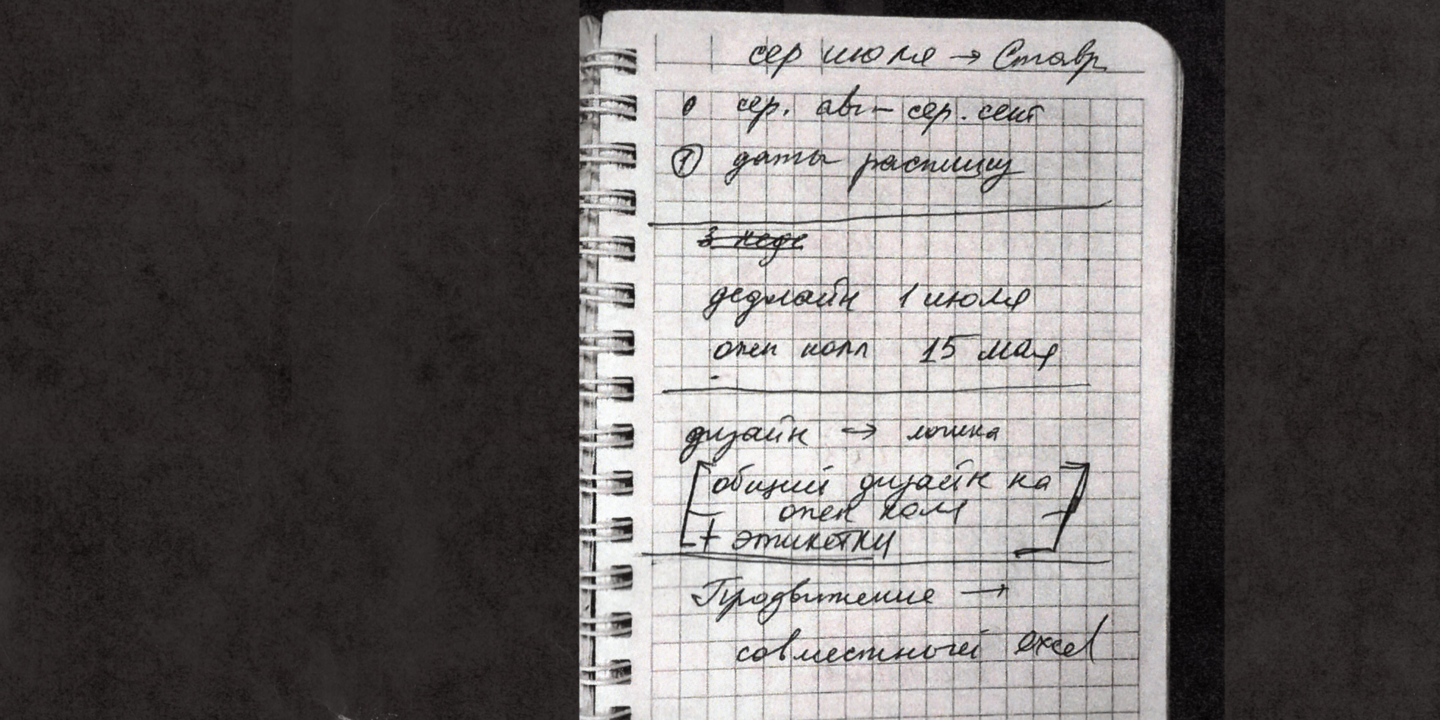 сер июля → Ставр
сер. авг – сер. сент
① даты распишу
3 неде
дедлайн 1 июля
опен колл 15 мая
дизайн → лошка
[общий дизайн на
опен колл
+ этикетки]
Продвижение →
совместный excel